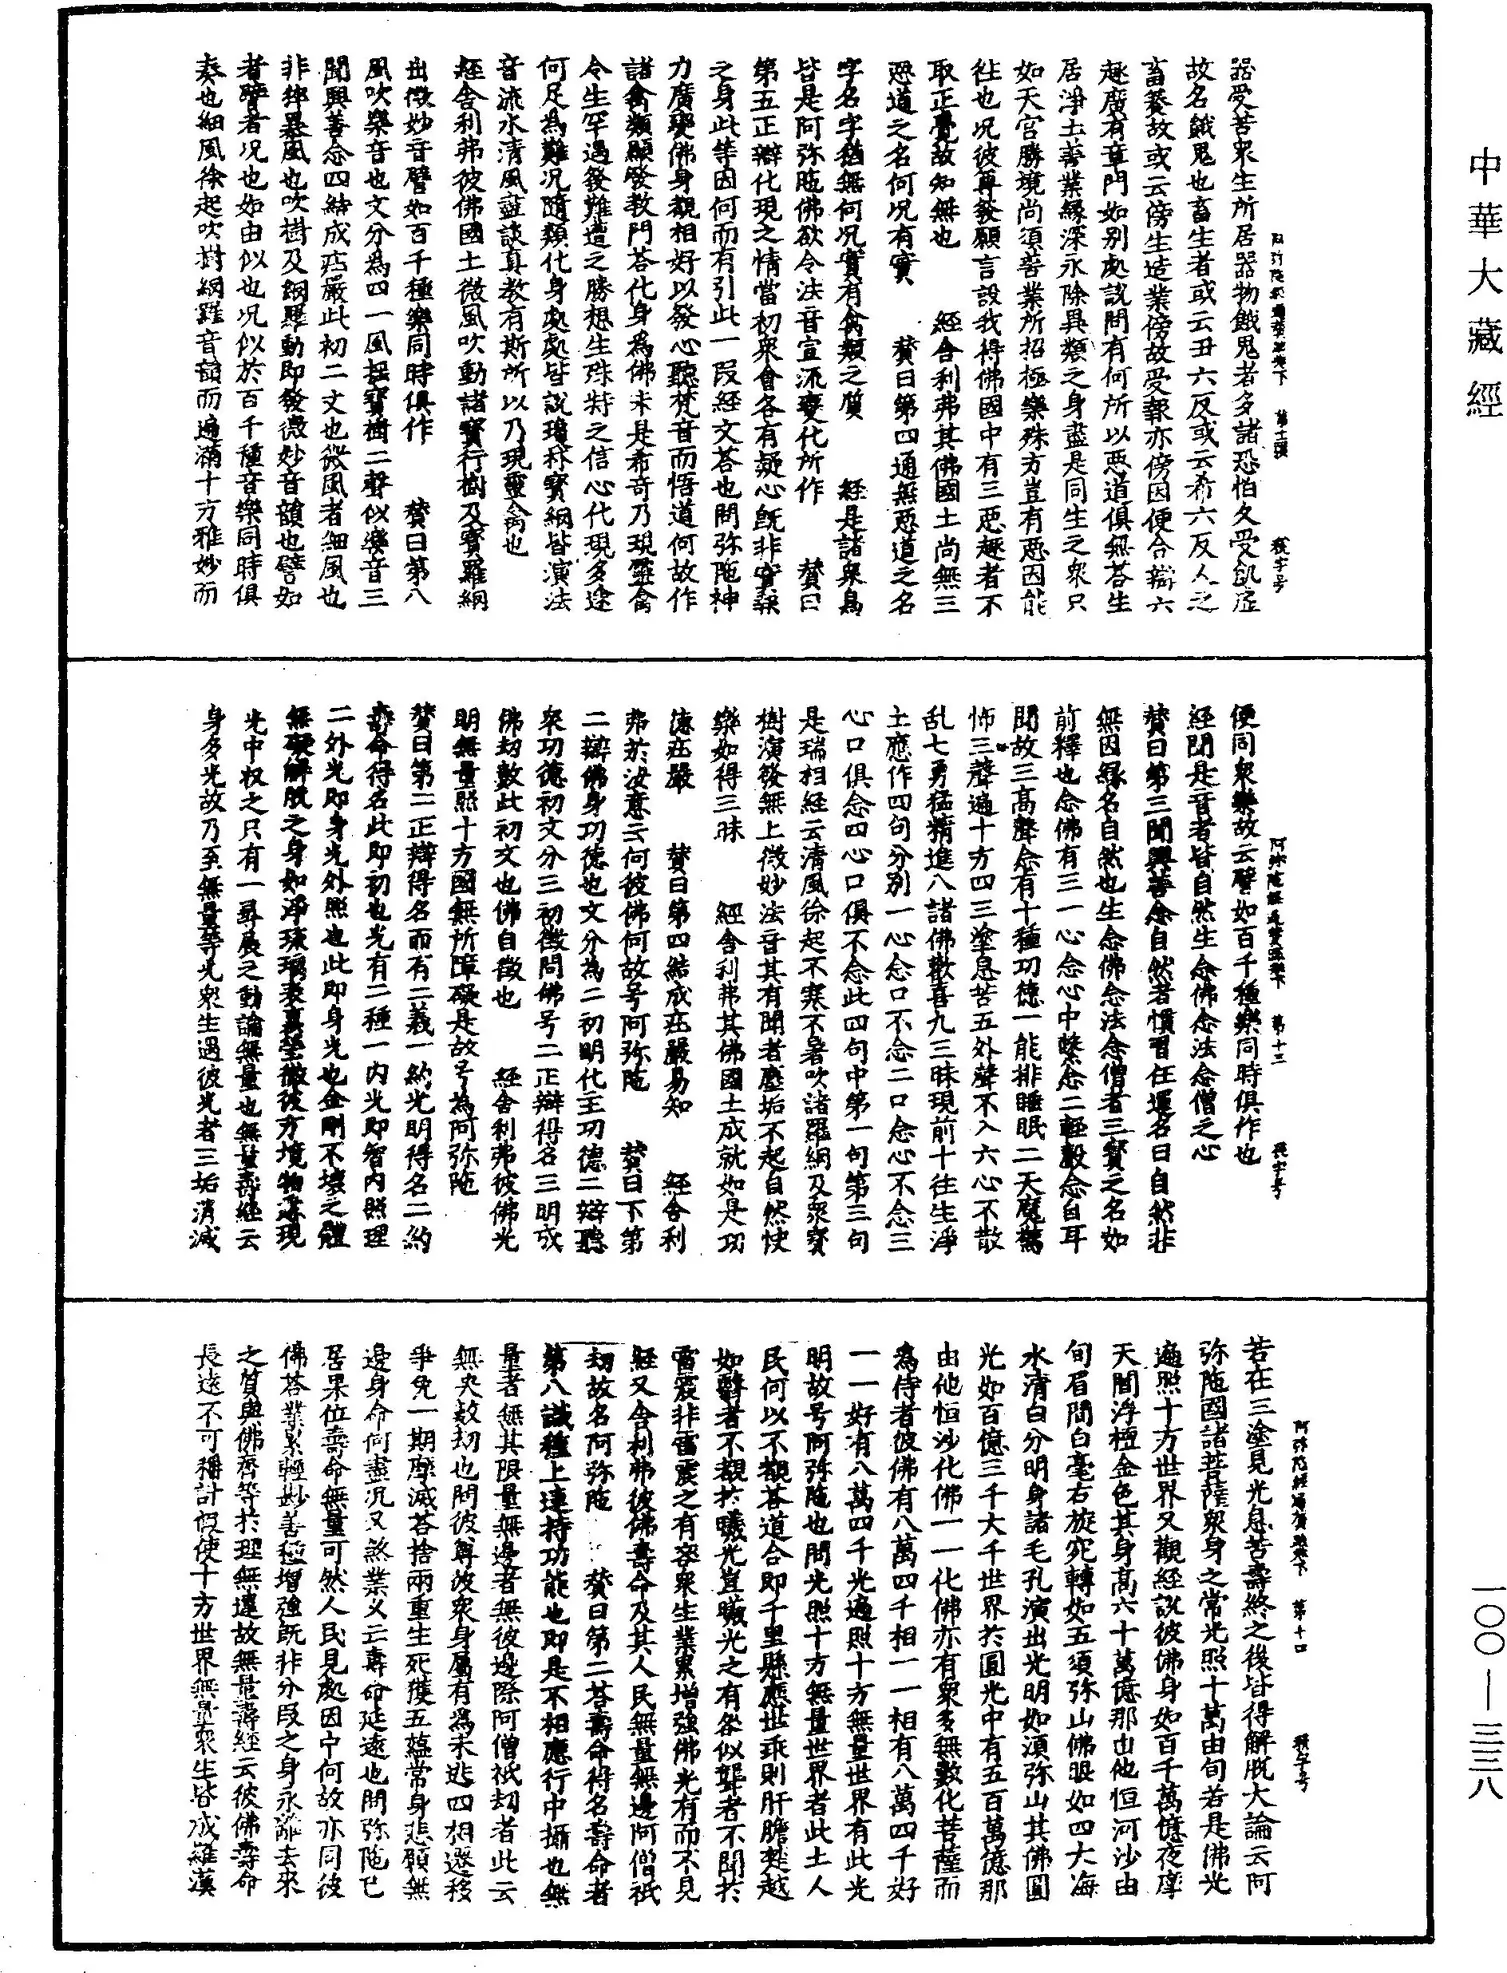 中華大藏經
一〇〇—三三八
阿弥陁經通贊疏卷下 第十二張 穫字号
器受苦衆生所居器物餓鬼者多諸恐怕久受飢虛
故名餓鬼也畜生者或云丑六反或云希六反人之
畜養故或云傍生造業傍故受報亦傍因便合辯六
趣廣有章門如別處說問有何所以惡道俱無荅生
居淨土善業縁深永除異類之身盡是同生之衆只
如天宮勝境尚須善業所招極樂殊方豈有惡因能
往也况彼尊發願言設我得佛國中有三惡趣者不
取正覺故知無也 經舎利弗其佛國土尚無三
惡道之名何况有實 賛曰第四通無惡道之名
字名字猶無何况實有禽類之質 經是諸衆鳥
皆是阿弥陁佛欲令法音宣流變化所作 賛曰
第五正辯化現之情當初衆會各有疑心既非實報
之身此等因何而有引此一段經文荅也問弥陁神
力廣變佛身覩相好以發心聽梵音而悟道何故作
諸禽類顯發教門荅化身為佛未是希奇乃現靈禽
令生罕遇發難遭之勝想生殊特之信心代現多途
何足為難况隨類化身處處皆說瓊林寳網皆演法
音流水清風盡談真教有斯所以乃現靈禽也
經舎利弗彼佛國土微風吹動諸寳行樹及寳羅網
出微妙音譬如百千種樂同時俱作 賛曰第八
風吹樂音也文分為四一風揺寳樹二聲似樂音三
聞興善念四結成莊嚴此初二文也微風者細風也
非猝暴風也吹樹及網羅動即發微妙音韻也譬如
者譬者况也如由似也况似於百千種音樂同時俱
奏也細風徐起吹樹網羅音韻而遍滿十方雅妙而
阿弥陁經通贊疏卷下 第十三 穫字号
便同衆樂故云譬如百千種樂同時俱作也
經聞是音者皆自然生念佛念法念僧之心
賛曰第三聞興善念自然者慣習任運名曰自然非
無因縁名自然也生念佛念法念僧者三寳之名如
前釋也念佛有三一心念心中繫念二輕聲念自耳
聞故三高聲念有十種功德一能排睡眠二天魔驚
怖三聲遍十方四三塗息苦五外聲不入六心不散
乱七勇猛精進八諸佛歡喜九三昧現前十往生淨
土應作四句分別一心念口不念二口念心不念三
心口俱念四心口俱不念此四句中第一句第三句
是瑞相經云清風徐起不寒不暑吹諸羅網及衆寳
樹演發無上微妙法音其有聞者塵垢不起自然快
樂如得三昧 經舎利弗其佛國土成就如是功
德莊嚴 賛曰第四結成莊嚴易知 經舎利
弗於汝意云何彼佛何故号阿弥陁 賛曰下第
二辯佛身功德也文分為二初明化主功德二辯聽
衆功德初文分三初徵問佛号二正辯得名三明成
佛劫數此初文也佛自徵也 經舎利弗彼佛光
明無量照十方國無所障礙是故号為阿弥陁
賛曰第二正辯得名而有二義一約光明得名二約
壽命得名此即初也光有二種一内光即智内照理
二外光即身光外照也此即身光也金剛不壊之體
無礙解脫之身如淨琉璃表裏瑩徹彼方境物悉現
光中杈之只有一尋展之動論無量也無量壽經云
身多光故乃至無量等光衆生遇彼光者三垢消滅
阿弥陁經通贊疏卷下 第十四 穫字号
若在三塗見光息苦壽終之後皆得解脫大論云阿
弥陁國諸菩薩衆身之常光照十萬由旬若是佛光
遍照十方世界又觀經說彼佛身如百千萬億夜摩
天閻浮檀金色其身高六十萬億那由他恒河沙由
旬眉間白毫右旋宛轉如五須弥山佛眼如四大海
水清白分明身諸毛孔演出光明如湏弥山其佛圓
光如百億三千大千世界於圓光中有五百萬億那
由他恒沙化佛一一化佛亦有衆多無數化菩薩而
為侍者彼佛有八萬四千相一一相有八萬四千好
一一好有八萬四千光遍照十方無量世界有此光
明故号阿弥陁也問光照十方無量世界者此土人
民何以不覩荅道合即千里懸應世乖則肝膽楚越
如瞽者不覩於曦光豈曦光之有咎似聾者不聞於
雷震非雷震之有咎衆生業累增強佛光有而不見
經又舎利弗彼佛壽命及其人民無量無邊阿僧祇
劫故名阿弥陁 賛曰第二荅壽命得名壽命者
第八識種上連持功能也即是不相應行中攝也無
量者無其限量無邊者無彼邊際阿僧祇劫者此云
無央數劫也問彼尊彼衆身屬有為未逃四相遷移
爭免一期磨滅荅捨兩重生死獲五蘊常身悲願無
邊身命何盡况又煞業义云壽命延遠也問弥陁已
居果位壽命無量可然人民見處因中何故亦同彼
佛荅業累輕尠善種增強既非分段之身永離去來
之質與佛齊等於理無違故無量壽經云彼佛壽命
長遠不可稱計假使十方世界無量衆生皆成羅漢